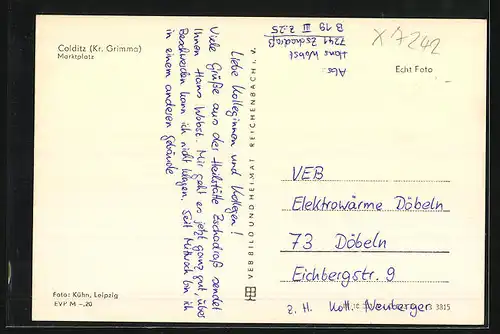 Colditz (Kr. Grimma)
Marktplatz
Abs.:
Hans Wobst
7241 Zschadraß
B 19 III Z.25
X 7242
Echt Foto
Liebe Kolleginnen und Kollegen!
Viele Grüße aus der Heilstätte Zschadraß sendet
Ihnen Hans Wobst. Mir geht es jetzt ganz gut über
Beschwerden kann ich nicht klagen. Seit Mittwoch bin ich
in einem anderen Gebäude
VEB BILD UND HEIMAT REICHENBACH I. V.
VEB
Elektrowärme Döbeln
73 Döbeln
Eichbergstr. 9
z. H. Koll. Neuberger
3815
Foto: Kühn, Leipzig
EVP M -,20